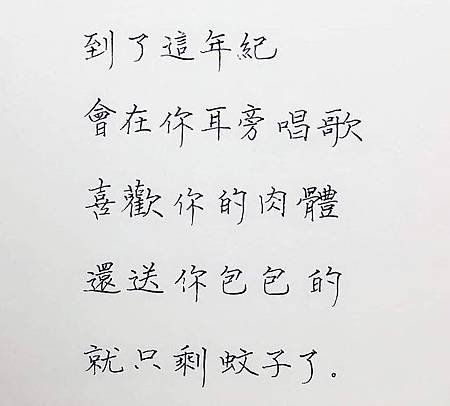 到了這年紀
會在你耳旁唱歌
喜歡你的肉體
還送你包包的
就只剩蚊子了。